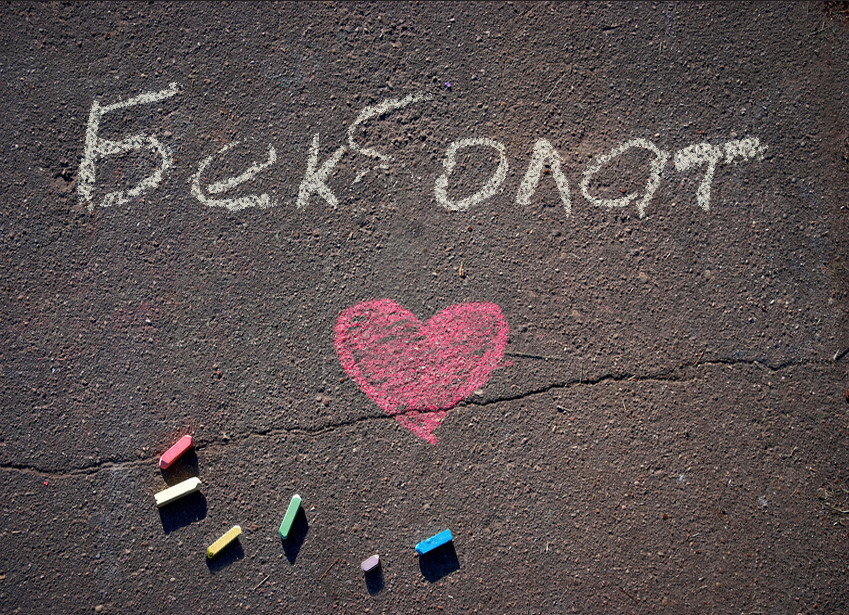 Бекболот